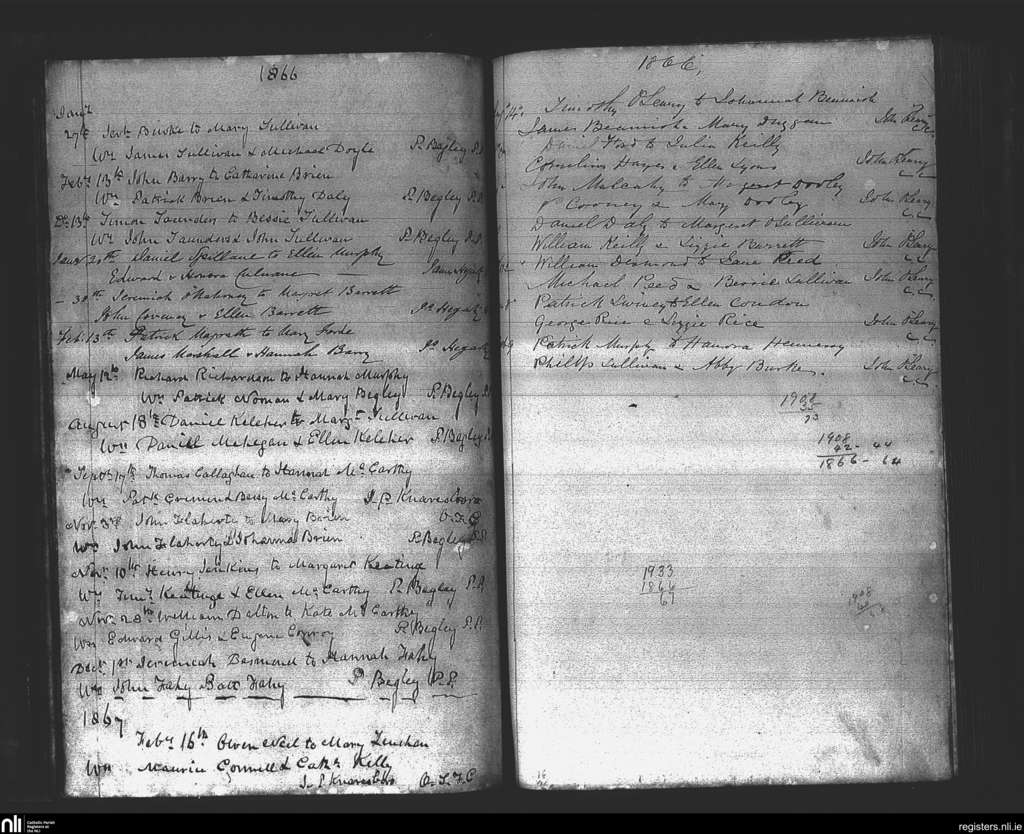 1866
Jany
27th Jerh Burke to Mary Sullivan
Wn James Sullivan & Michael Doyle P. Begley P.P.
Feby 13th John Barry to Catharine Brien
Wn Patrick Brien & Timothy Daly P. Begley P.P.
Do 13th Simon Saunders to Bessie Sullivan
Wn John Saunders & John Sullivan P. Begley P.P.
Daniel Spillane to Ellen Murphy
Edward & Honora Culnane
30th Jeremiah O'Mahoney to Margret Barrett
John Coveney & Ellen Barrett Js Hegarty
Feb. 13th Patrick Magrath to Mary Forde
James Marshall & Hannah Barry Js Hegarty
May 12th Richard Richardson to Hannah Murphy
Wn Patrick Noonan & Mary Begley P. Begley P.P.
August 18th Daniel Keleher to Margt Sullivan
Wn Daniel Mehegan & Ellen Keleher P. Begley
Septbr 17th Thomas Callaghan to Hanorah McCarthy
Wn Patk Cremin & Bessy McCarthy J. P. Knaresboro
Novr 3rd John Flaherty to Mary Brien O.S.F.C.
Wn John Flaherty & Johanna Brien P. Begley P.P.
Novr 10th Henry Jenkins to Margaret Keatinge
Wn Timy Keatinge & Ellen McCarthy P. Begley P.P.
Novr 28th William Dalton to Kate McCarthy
Wn Edward Gillis & Eugene Conroy P. Begley P.P.
Decr 1st Jeremiah Desmond to Hannah Fahy
Wn John Fahy Batt Fahy P. Begley P.P.
1867
Feby 16th Owen Neil to Mary Linehan
Wn Maurice Connell & Cathe Kelly
J. P. Knaresboro O.S.F.C.
1866,
Timothy O'Leary to Johannah Beamish
James Beamish & Mary Duggan John O'Leary C.C.
Daniel Ford to Julia Reilly
Cornelius Hayes & Ellen Lyons John O'Leary C.C.
John Mulcahy to Margaret Dooley
P Cooney & Mary Dooley John O'Leary C.C.
Daniel Daly to Margaret O'Sullivan
William Reilly & Lizzie Barrett John O'Leary C.C.
William Desmond to Jane Reed
Michael Reed & Bessie Sullivan John O'Leary C.C.
Patrick Swiney to Ellen Condon
George Rice & Lizzie Rice John O'Leary C.C.
Patrick Murphy to Hanora Hennessy
Phillip Sullivan & Abby Burke. John O'Leary C.C.
1908
35
73
1908
42 - 44
1866 - 64
1933
1866
67
nli Catholic Parish Registers at the NLI
registers.nli.ie